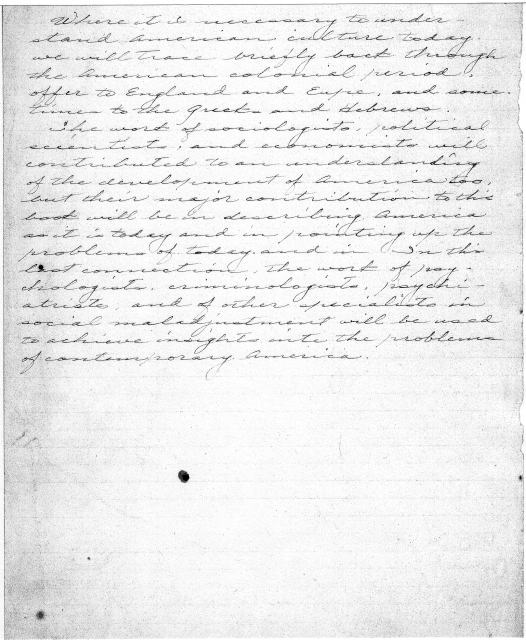 Where it is necessary to under-
stand American culture today.
we will trace briefly back through
the American colonial period,
offer to England and Eupe, and some-
times to the Greeks and Hebrews.
The work of sociologists, political
scientists, and economists will
contributed to an understanding
of the development of America too,
but their major contribution to this
book will be in describing America
as it is today and in pointing up the
problems of today, and in In this
last connection, the work of psy-
chologists, criminologists, psychi-
atrists, and of other specialists in
social maladjustment will be used
to achieve insights into the problems
of contemporary America.